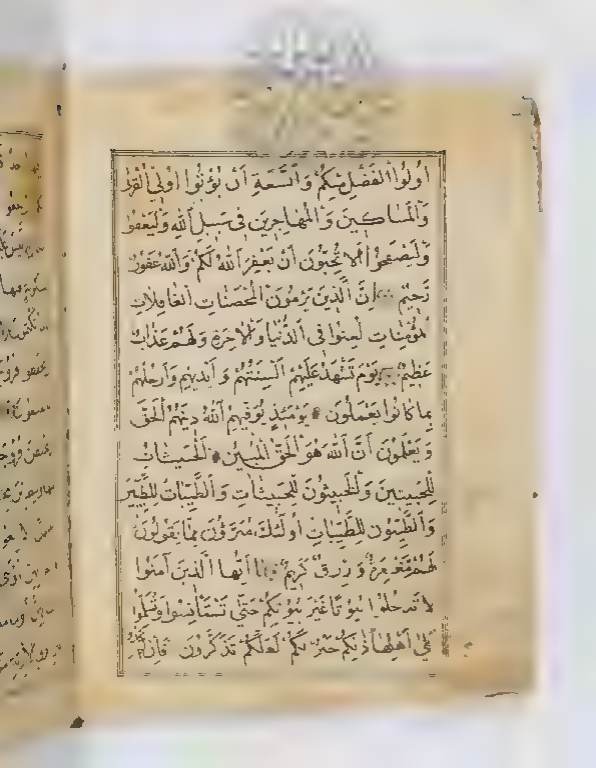 أُولُوا الْفَضْلِ مِنْكُمْ وَالسَّعَةِ أَنْ يُؤْتُوا أُولِي الْقُرْبَى
وَالْمَسَاكِينَ وَالْمُهَاجِرِينَ فِي سَبِيلِ اللَّهِ وَلْيَعْفُوا
وَلْيَصْفَحُوا أَلَا تُحِبُّونَ أَنْ يَغْفِرَ اللَّهُ لَكُمْ وَاللَّهُ غَفُورٌ
رَحِيمٌ إِنَّ الَّذِينَ يَرْمُونَ الْمُحْصَنَاتِ الْغَافِلَاتِ
الْمُؤْمِنَاتِ لُعِنُوا فِي الدُّنْيَا وَالْآخِرَةِ وَلَهُمْ عَذَابٌ
عَظِيمٌ يَوْمَ تَشْهَدُ عَلَيْهِمْ أَلْسِنَتُهُمْ وَأَيْدِيهِمْ وَأَرْجُلُهُمْ
بِمَا كَانُوا يَعْمَلُونَ يَوْمَئِذٍ يُوَفِّيهِمُ اللَّهُ دِينَهُمُ الْحَقَّ
وَيَعْلَمُونَ أَنَّ اللَّهَ هُوَ الْحَقُّ الْمُبِينُ الْخَبِيثَاتُ
لِلْخَبِيثِينَ وَالْخَبِيثُونَ لِلْخَبِيثَاتِ وَالطَّيِّبَاتُ لِلطَّيِّبِينَ
وَالطَّيِّبُونَ لِلطَّيِّبَاتِ أُولَئِكَ مُبَرَّؤُنَ مِمَّا يَقُولُونَ
لَهُمْ مَغْفِرَةٌ وَرِزْقٌ كَرِيمٌ يَا أَيُّهَا الَّذِينَ آمَنُوا
لَا تَدْخُلُوا بُيُوتًا غَيْرَ بُيُوتِكُمْ حَتَّى تَسْتَأْنِسُوا وَتُسَلِّمُوا
عَلَى أَهْلِهَا ذَلِكُمْ خَيْرٌ لَكُمْ لَعَلَّكُمْ تَذَكَّرُونَ فَإِنْ